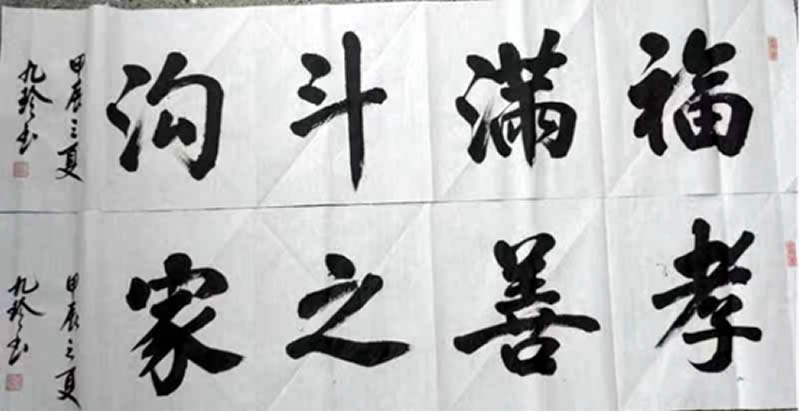 福满斗沟
甲辰之夏
九玲书
孝善之家
甲辰之夏
九玲书